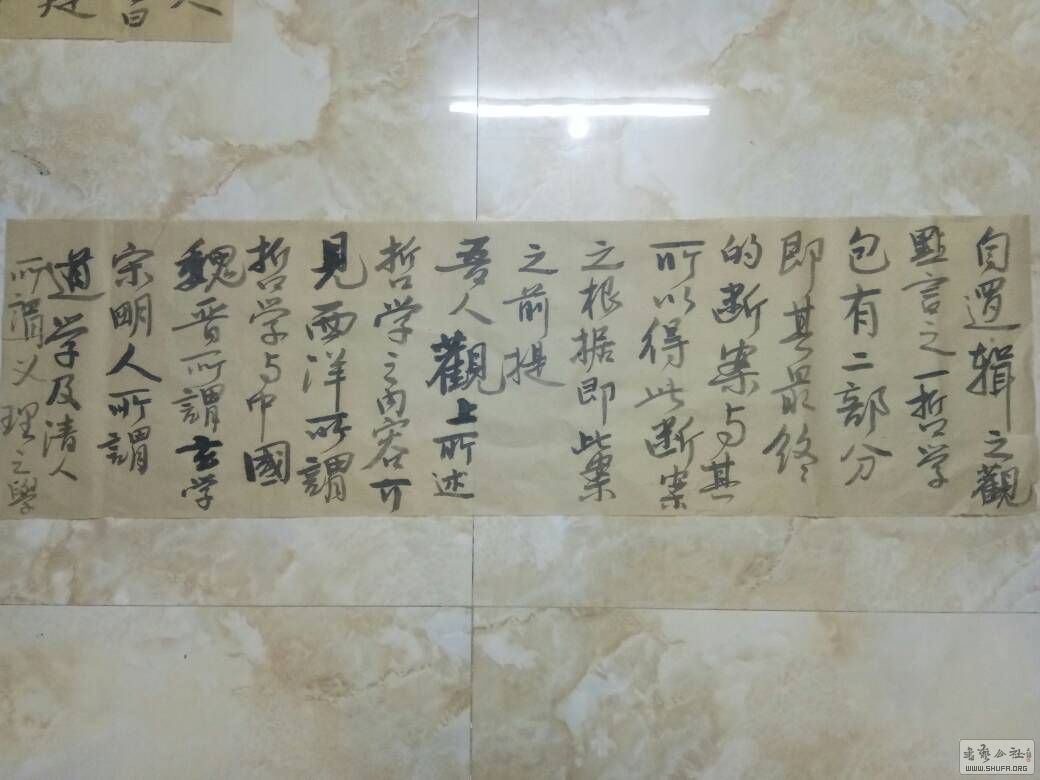 自逻辑之觀
點言之一哲学
包有二部分
即其最终
的断案与其
所以得此断案
之根据即此案
之前提
吾人觀上所述
哲学之内容可
見西洋所謂
哲学与中國
魏晋所謂玄学
宋明人所謂
道学及清人
所謂义理之學
WWW.SHUFA.ORG